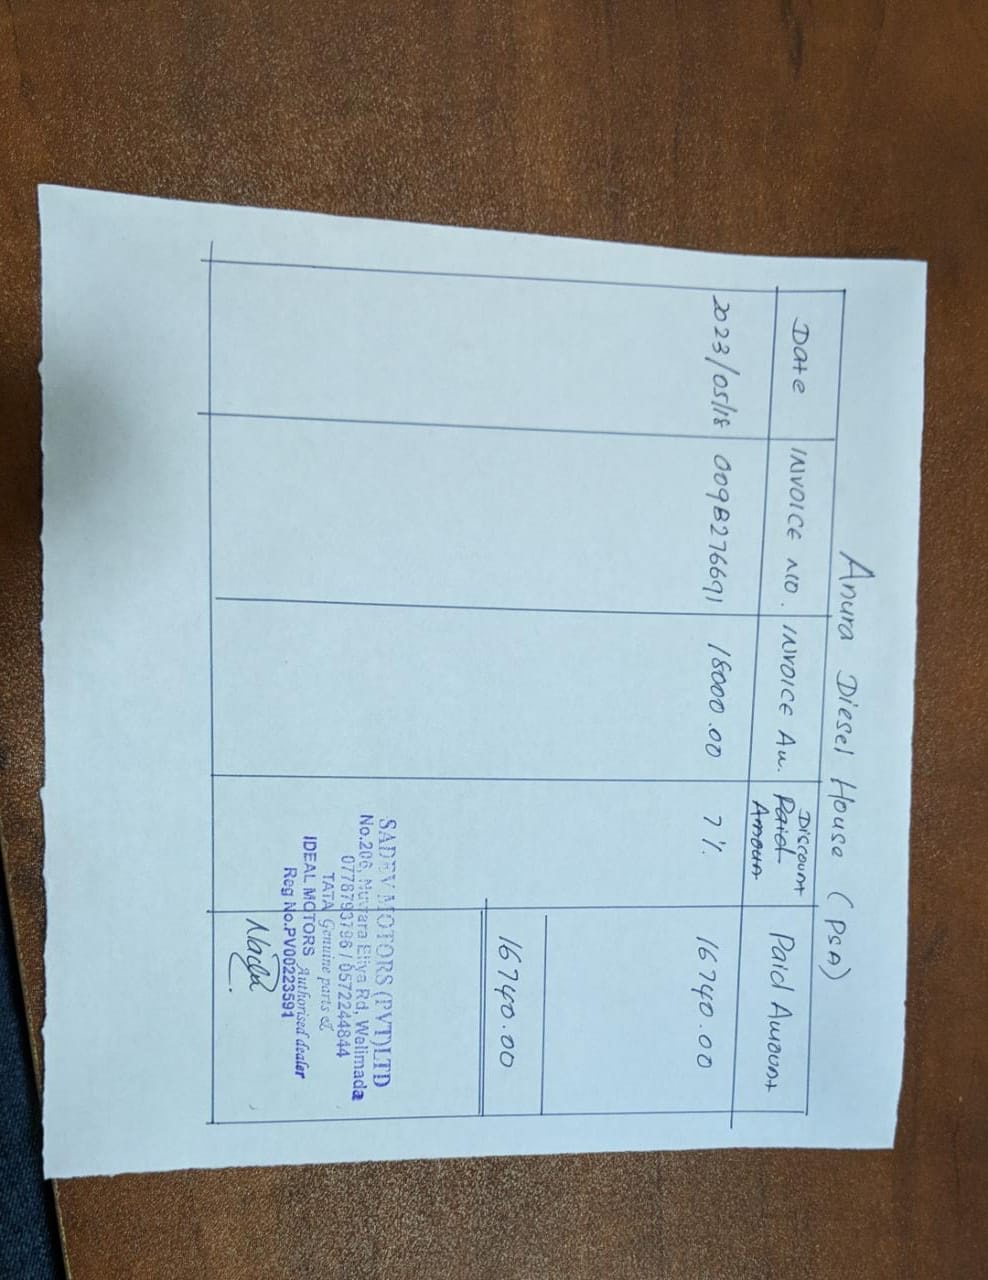 Anura Diesel House (PSA)
Date INVOICE NO. INVOICE Au. Discount Paid Amount Paid Amount
2023/05/18 009B276691 18000.00 7% 16740.00
16740.00
SADEV MOTORS (PVT)LTD
No.206, Nuwara Eliya Rd, Welimada
0778793796 / 0572244844
TATA Genuine parts &
IDEAL MOTORS Authorised dealer
Reg No.PV00223591